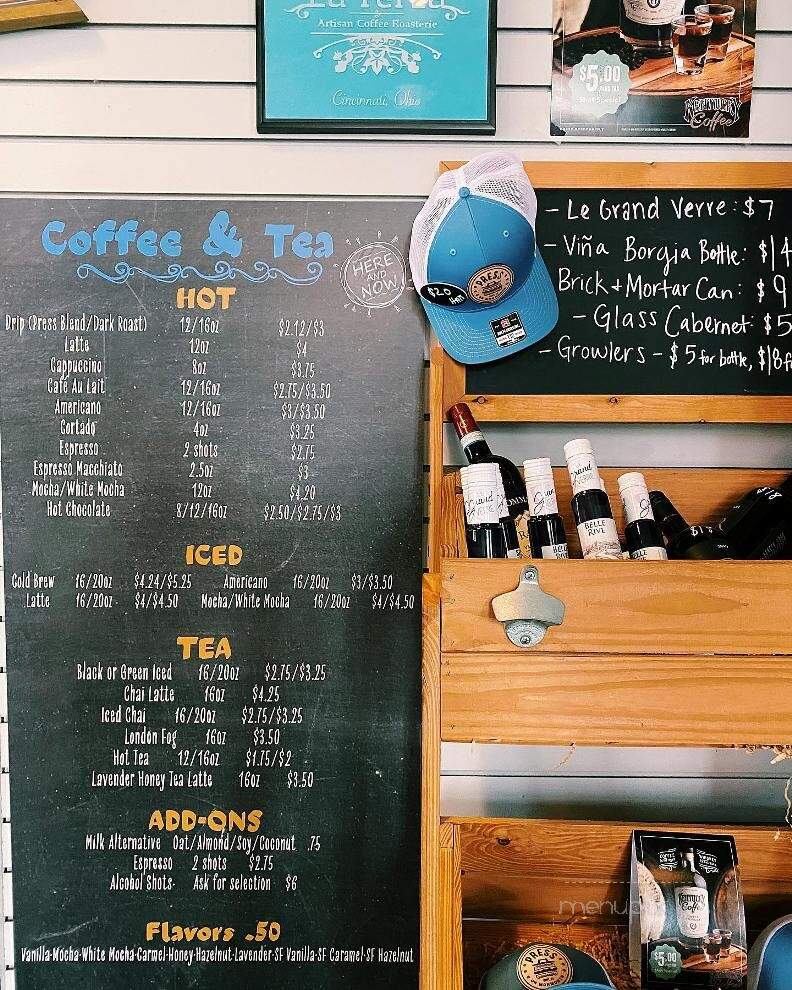 Artisan Coffee Roasterie
Cincinnati, Ohio
$5.00
PLUS TAX
Shot Special
Coffee
Coffee & Tea
HERE
AND
NOW
HOT
Drip (Press Blend/Dark Roast) 12/16oz $2.12/$3
Latte 12oz $4
Cappuccino 8oz $3.75
Café Au Lait 12/16oz $2.75/$3.50
Americano 12/16oz $3/$3.50
Cortado 4oz $3.25
Espresso 2 shots $2.75
Espresso Macchiato 2.5oz $3
Mocha/White Mocha 12oz $4.20
Hot Chocolate 8/12/16oz $2.50/$2.75/$3
ICED
Cold Brew 16/20oz $4.24/$5.25 Americano 16/20oz $3/$3.50
Latte 16/20oz $4/$4.50 Mocha/White Mocha 16/20oz $4/$4.50
TEA
Black or Green Iced 16/20oz $2.75/$3.25
Chai Latte 16oz $4.25
Iced Chai 16/20oz $2.75/$3.25
London Fog 16oz $3.50
Hot Tea 12/16oz $1.75/$2
Lavender Honey Tea Latte 16oz $3.50
ADD-ONS
Milk Alternative Oat/Almond/Soy/Coconut .75
Espresso 2 shots $2.75
Alcohol Shots- Ask for selection $6
Flavors .50
Vanilla-Mocha-White Mocha-Carmel-Honey-Hazelnut-Lavender-SF Vanilla-SF Caramel-SF Hazelnut
- Le Grand Verre: $7
- Viña Borgia Bottle: $14
Brick + Mortar Can: $9
- Glass Cabernet: $5
- Growlers - $5 for bottle, $18 f
PRESS
$20
BELLE
RIVE
BELLE
RIVE
Coffee
$5.00
PRESS
menupix